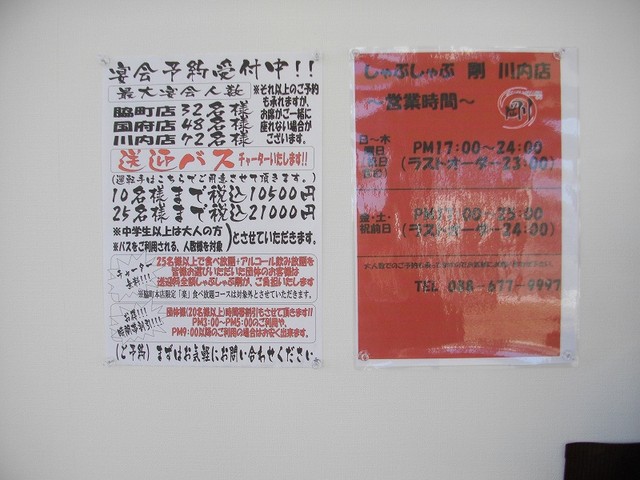 宴会予約受付中!!
最大宴会人数
脇町店32名様
国府店48名様
川内店72名様
※それ以上のご予約
も承れますが、
お席がご一緒に
座れない場合が
ございます。
送迎バス チャーターいたします!!
(運転手はこちらでご用意させて頂きます。)
10名様まで税込10500円
25名様まで税込21000円
※中学生以上は大人の方
※バスをご利用される、人数様を対象
とさせていただきます。
チャーター
無料!!!
25名様以上で食べ放題+アルコール飲み放題を
皆様お選びいただいた団体のお客様は
送迎料全額しゃぶしゃぶ剛が、ご負担いたします
※脇町本店限定「楽」食べ放題コースは対象外とさせていただきます。
お得!!!
時間帯割引!!!
団体様(20名様以上)時間帯割引もさせて頂きます!!
PM3:00〜PM5:00のご利用や、
PM9:00以降のご利用の場合はお安く出来ます。
(ご予約)まずはお気軽にお問い合わせください
しゃぶしゃぶ 剛 川内店
〜営業時間〜
剛
日〜木
PM17:00〜24:00
(ラストオーダー23:00)
金・土・
祝前日
PM17:00〜25:00
(ラストオーダー24:00)
TEL 088-677-9997